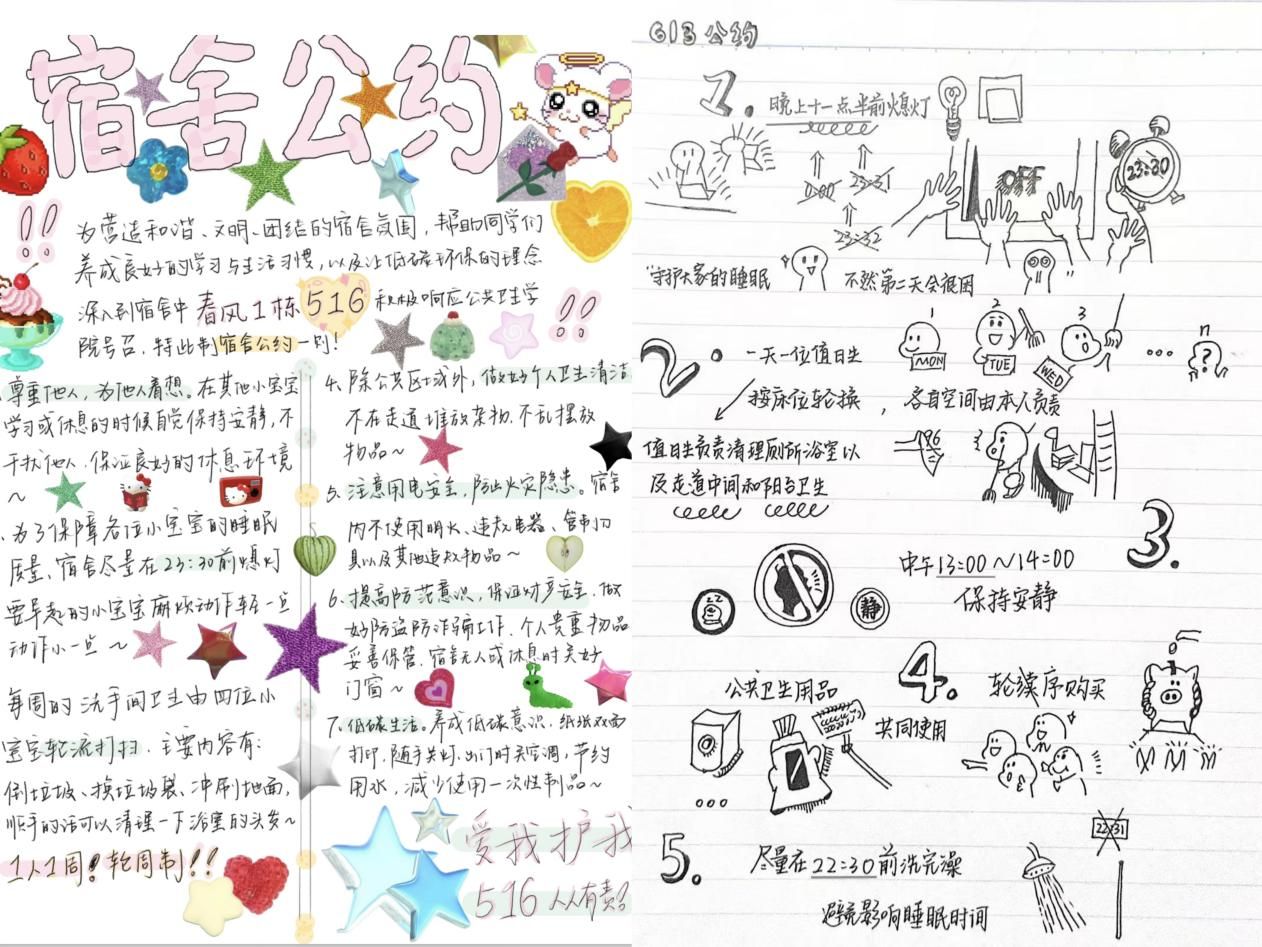 宿舍公约
!! 为营造和谐、文明、团结的宿舍氛围,帮助同学们
养成良好的学习与生活习惯,以及让低碳环保的理念
深入到宿舍中 春风1栋516 积极响应公共卫生学
院号召,特此制宿舍公约一则! !!
尊重他人,为他人着想。在其他小宝宝
学习或休息的时候自觉保持安静,不
干扰他人,保证良好的休息环境
~
、为了保障各位小宝宝的睡眠
质量,宿舍尽量在23:30前熄灯
要早起的小宝宝麻烦动作轻一点
动作小一点~
每周的洗手间卫生由四位小
宝宝轮流打扫,主要内容有:
倒垃圾、换垃圾袋、冲刷地面,
顺手的话可以清理一下浴室的头发~
1人1周!轮周制!!
4、除公共区域外,做好个人卫生清洁
不在走道堆放杂物,不乱摆放
物品~
5、注意用电安全,防止火灾隐患。宿舍
内不使用明火、违规电器、管制刀
具以及其他违规物品~
6、提高防范意识,保证财产安全,做
好防盗防诈骗工作,个人贵重物品
妥善保管,宿舍无人或休息时关好
门窗~
7、低碳生活。养成低碳意识,纸张双面
打印,随手关灯,出门时关空调,节约
用水,减少使用一次性制品~
爱我护我
516 人人有责
613公约
1. 晚上十一点半前熄灯
0:00 23:31
23:32
OFF
23:30
守护大家的睡眠 不然第二天会很困
2. 一天一位值日生
1 2 3 ... n
MON TUE WED ?
按床位轮换,各自空间由本人负责
值日生负责清理厕所浴室以
及走道中间和阳台卫生
3. 中午13:00~14:00
保持安静
静
4. 轮续序购买
公共卫生用品
共同使用
...
5. 尽量在22:30前洗完澡
22:31
避免影响睡眠时间